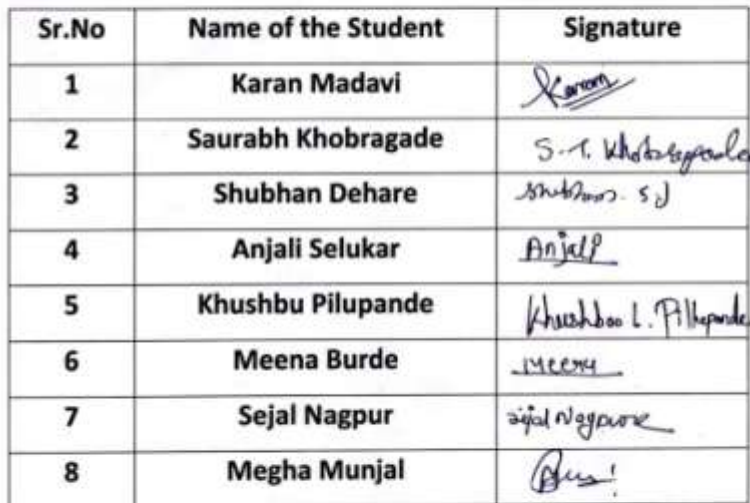 Sr.No Name of the Student Signature
1 Karan Madavi Karan
2 Saurabh Khobragade S.T. Khobragade
3 Shubhan Dehare S D
4 Anjali Selukar Anjali
5 Khushbu Pilupande Khushboo L. Pillhepande
6 Meena Burde Meena
7 Sejal Nagpur Sejal Nagpure
8 Megha Munjal